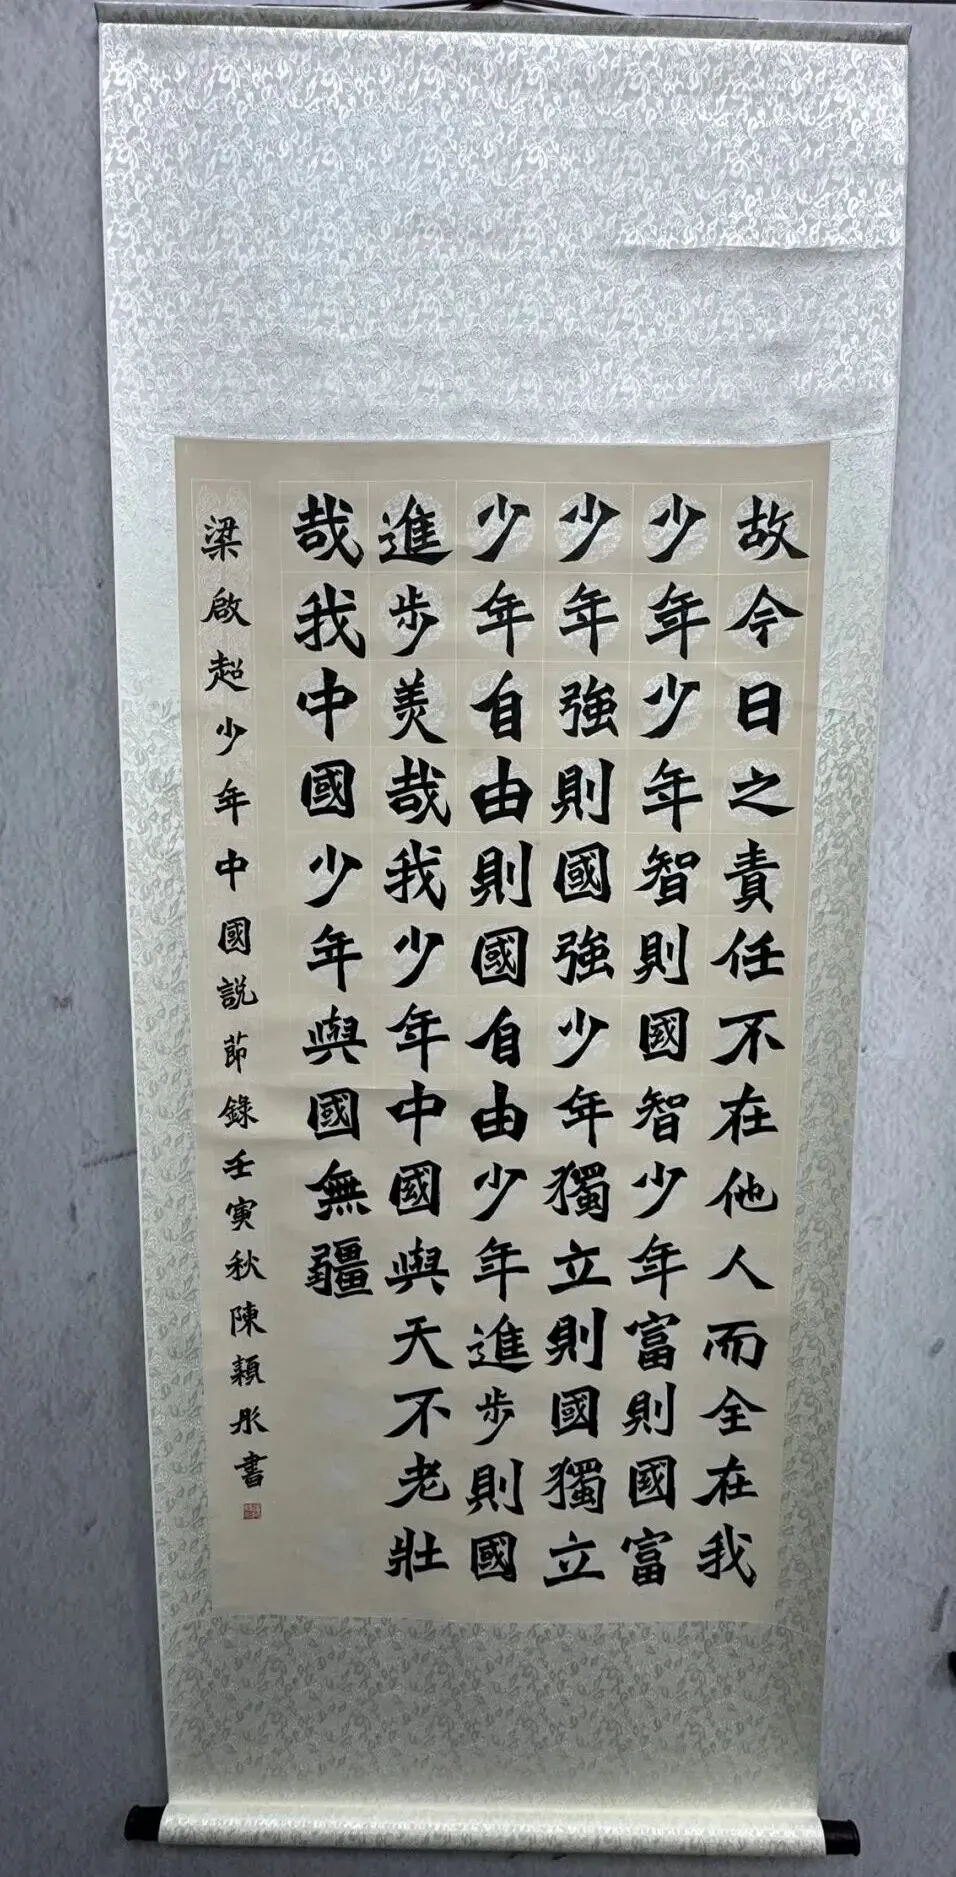 故今日之責任不在他人而全在我
少年少年智則國智少年富則國富
少年強則國強少年獨立則國獨立
少年自由則國自由少年進步則國
進步美哉我少年中國與天不老壯
哉我中國少年與國無疆
梁啟超少年中國説節錄壬寅秋陳穎彤書